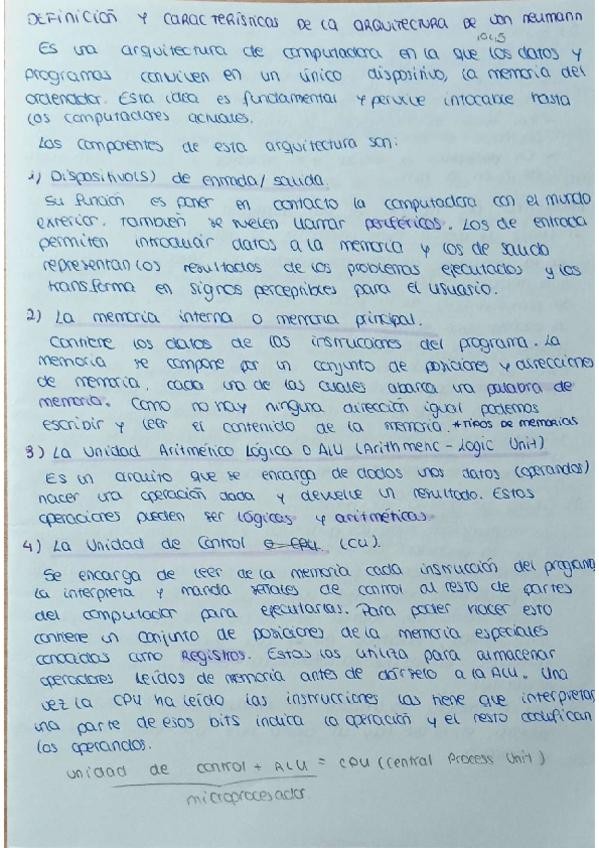 DEFINICIÓN Y CARACTERÍSTICAS DE LA ARQUITECTURA DE VON NEUMANN
1945
Es una arquitectura de computadora en la que los datos y
programas conviven en un único dispositivo, la memoria del
ordenador. Esta idea es fundamental y pervive intocable hasta
los computadores actuales.
Los componentes de esta arquitectura son:
1) Dispositivo(s) de entrada/salida.
Su función es poner en contacto la computadora con el mundo
exterior. También se suelen llamar periféricos. Los de entrada
permiten introducir datos a la memoria y los de salida
representan los resultados de los problemas ejecutados y los
transforma en signos perceptibles para el usuario.
2) La memoria interna o memoria principal.
Contiene los datos de las instrucciones del programa. La
memoria se compone por un conjunto de posiciones y direcciones
de memoria, cada una de las cuales abarca una palabra de
memoria. Como no hay ninguna dirección igual podemos
escribir y leer el contenido de la memoria. *TIPOS DE MEMORIAS
3) La Unidad Aritmético Lógica o ALU (Arithmetic-Logic Unit)
Es un circuito que se encarga de dados unos datos (operandos)
hacer una operación dada y devuelve un resultado. Estas
operaciones pueden ser lógicas y aritméticas.
4) La Unidad de Control o CPU (CU).
Se encarga de leer de la memoria cada instrucción del programa
la interpreta y manda señales de control al resto de partes
del computador para ejecutarlas. Para poder hacer esto
contiene un conjunto de posiciones de la memoria especiales
conocidas como Registros. Estas las utiliza para almacenar
operadores leídos de memoria antes de dárselo a la ALU. Una
vez la CPU ha leído las instrucciones las tiene que interpretar
una parte de esos bits indica la operación y el resto codifican
los operandos.
unidad de control + ALU = CPU (Central Process Unit)
microprocesador